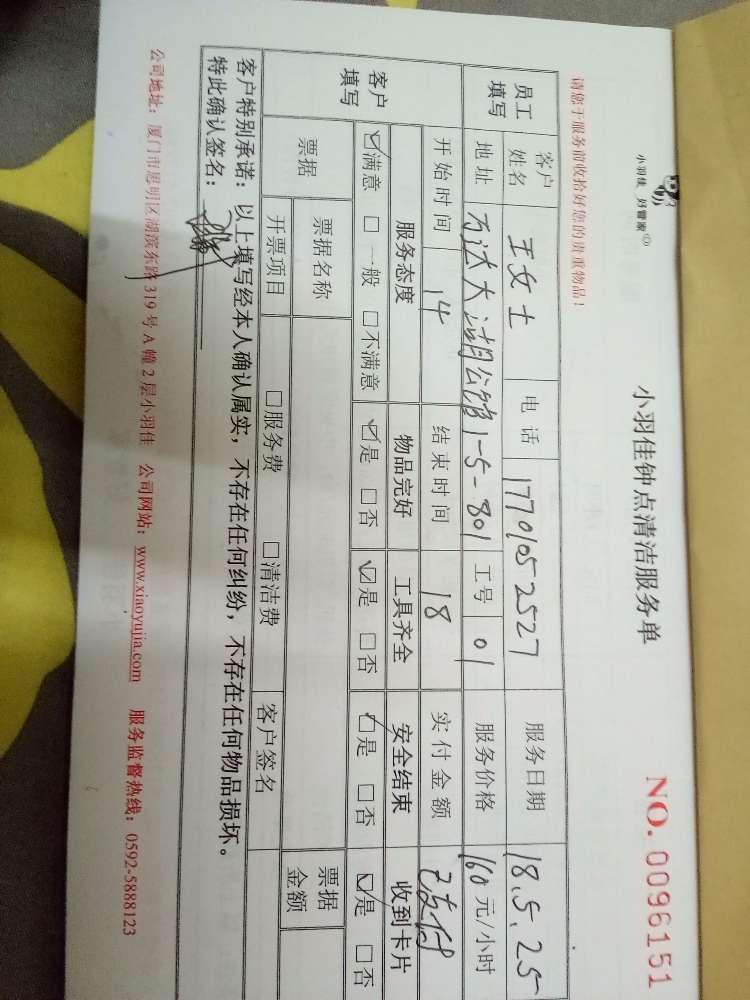 小羽佳 好管家
小羽佳钟点清洁服务单
NO. 0096151
请您于服务前收拾好您的贵重物品！
员工填写 客户姓名 王女士 电话 17701052527 服务日期 18.5.25
地址 万达大湖公馆1-5-801 工号 01 服务价格 160元/小时
开始时间 14 结束时间 18 实付金额 已支付
客户填写 服务态度 物品完好 工具齐全 安全结束 收到卡片
☑满意 □一般 □不满意 ☑是 □否 ☑是 □否 ☑是 □否 ☑是 □否
票据 票据名称 票据金额
开票项目 □服务费 □清洁费 客户签名
客户特别承诺：以上填写经本人确认属实，不存在任何纠纷，不存在任何物品损坏。
特此确认签名：
公司地址：厦门市思明区湖滨东路319号A幢2层小羽佳 公司网站：www.xiaoyujia.com 服务监督热线：0592-5888123